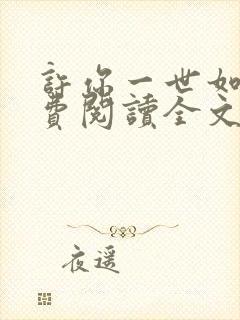 許你一世如
費閱讀全文
夜遥